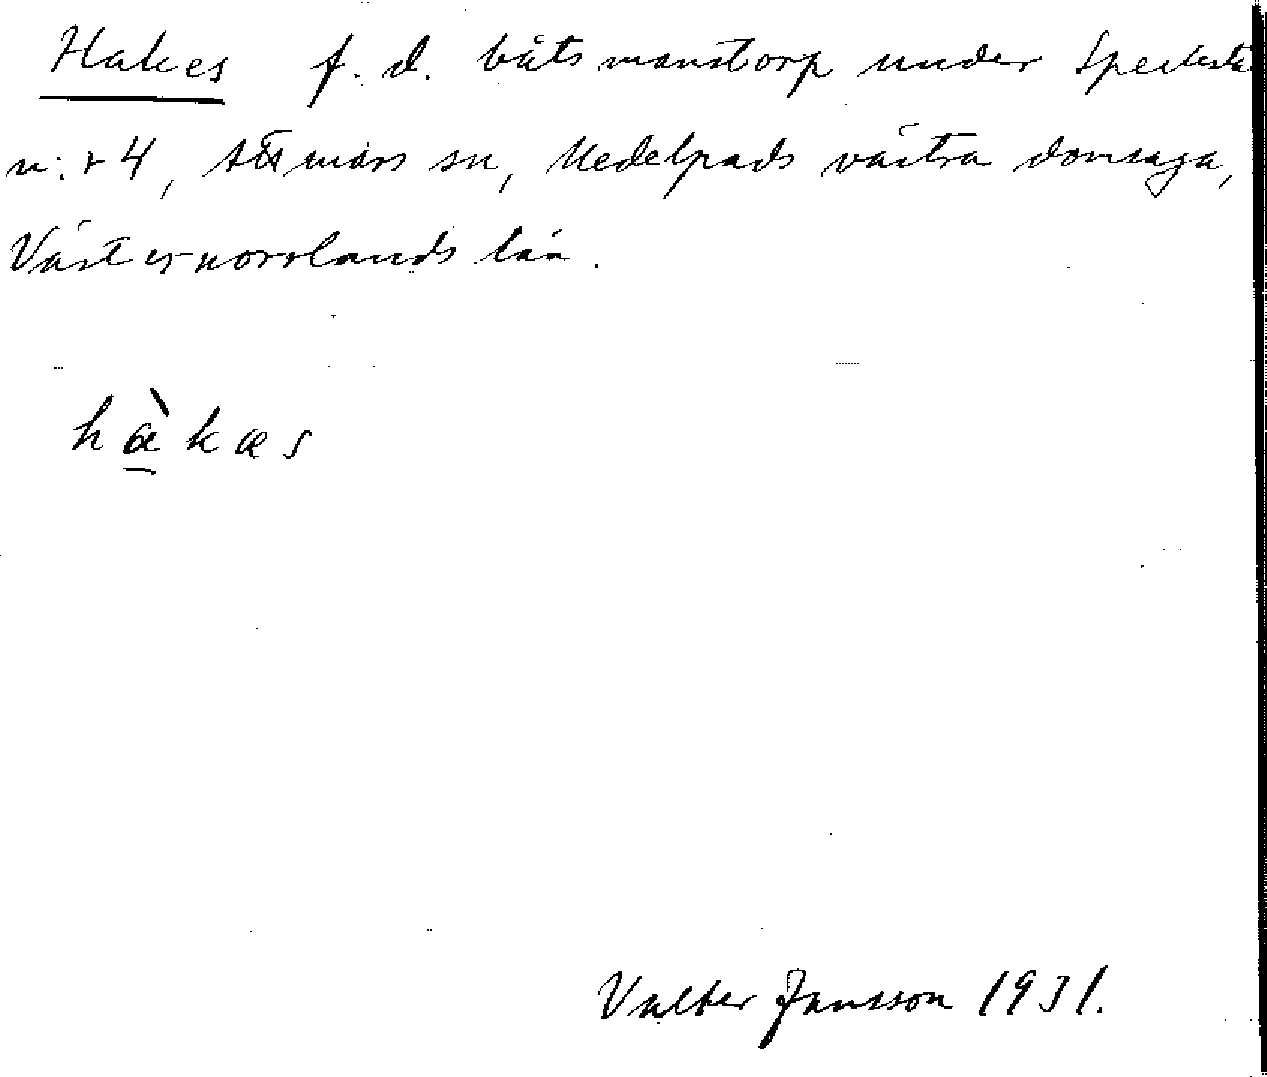 Hakes f. d. båtsmanstorp under
n:r 4, Attmars sn, Medelpads västra domsaga,
Västernorrlands län.
hàkæs
Valter Jansson 1931.